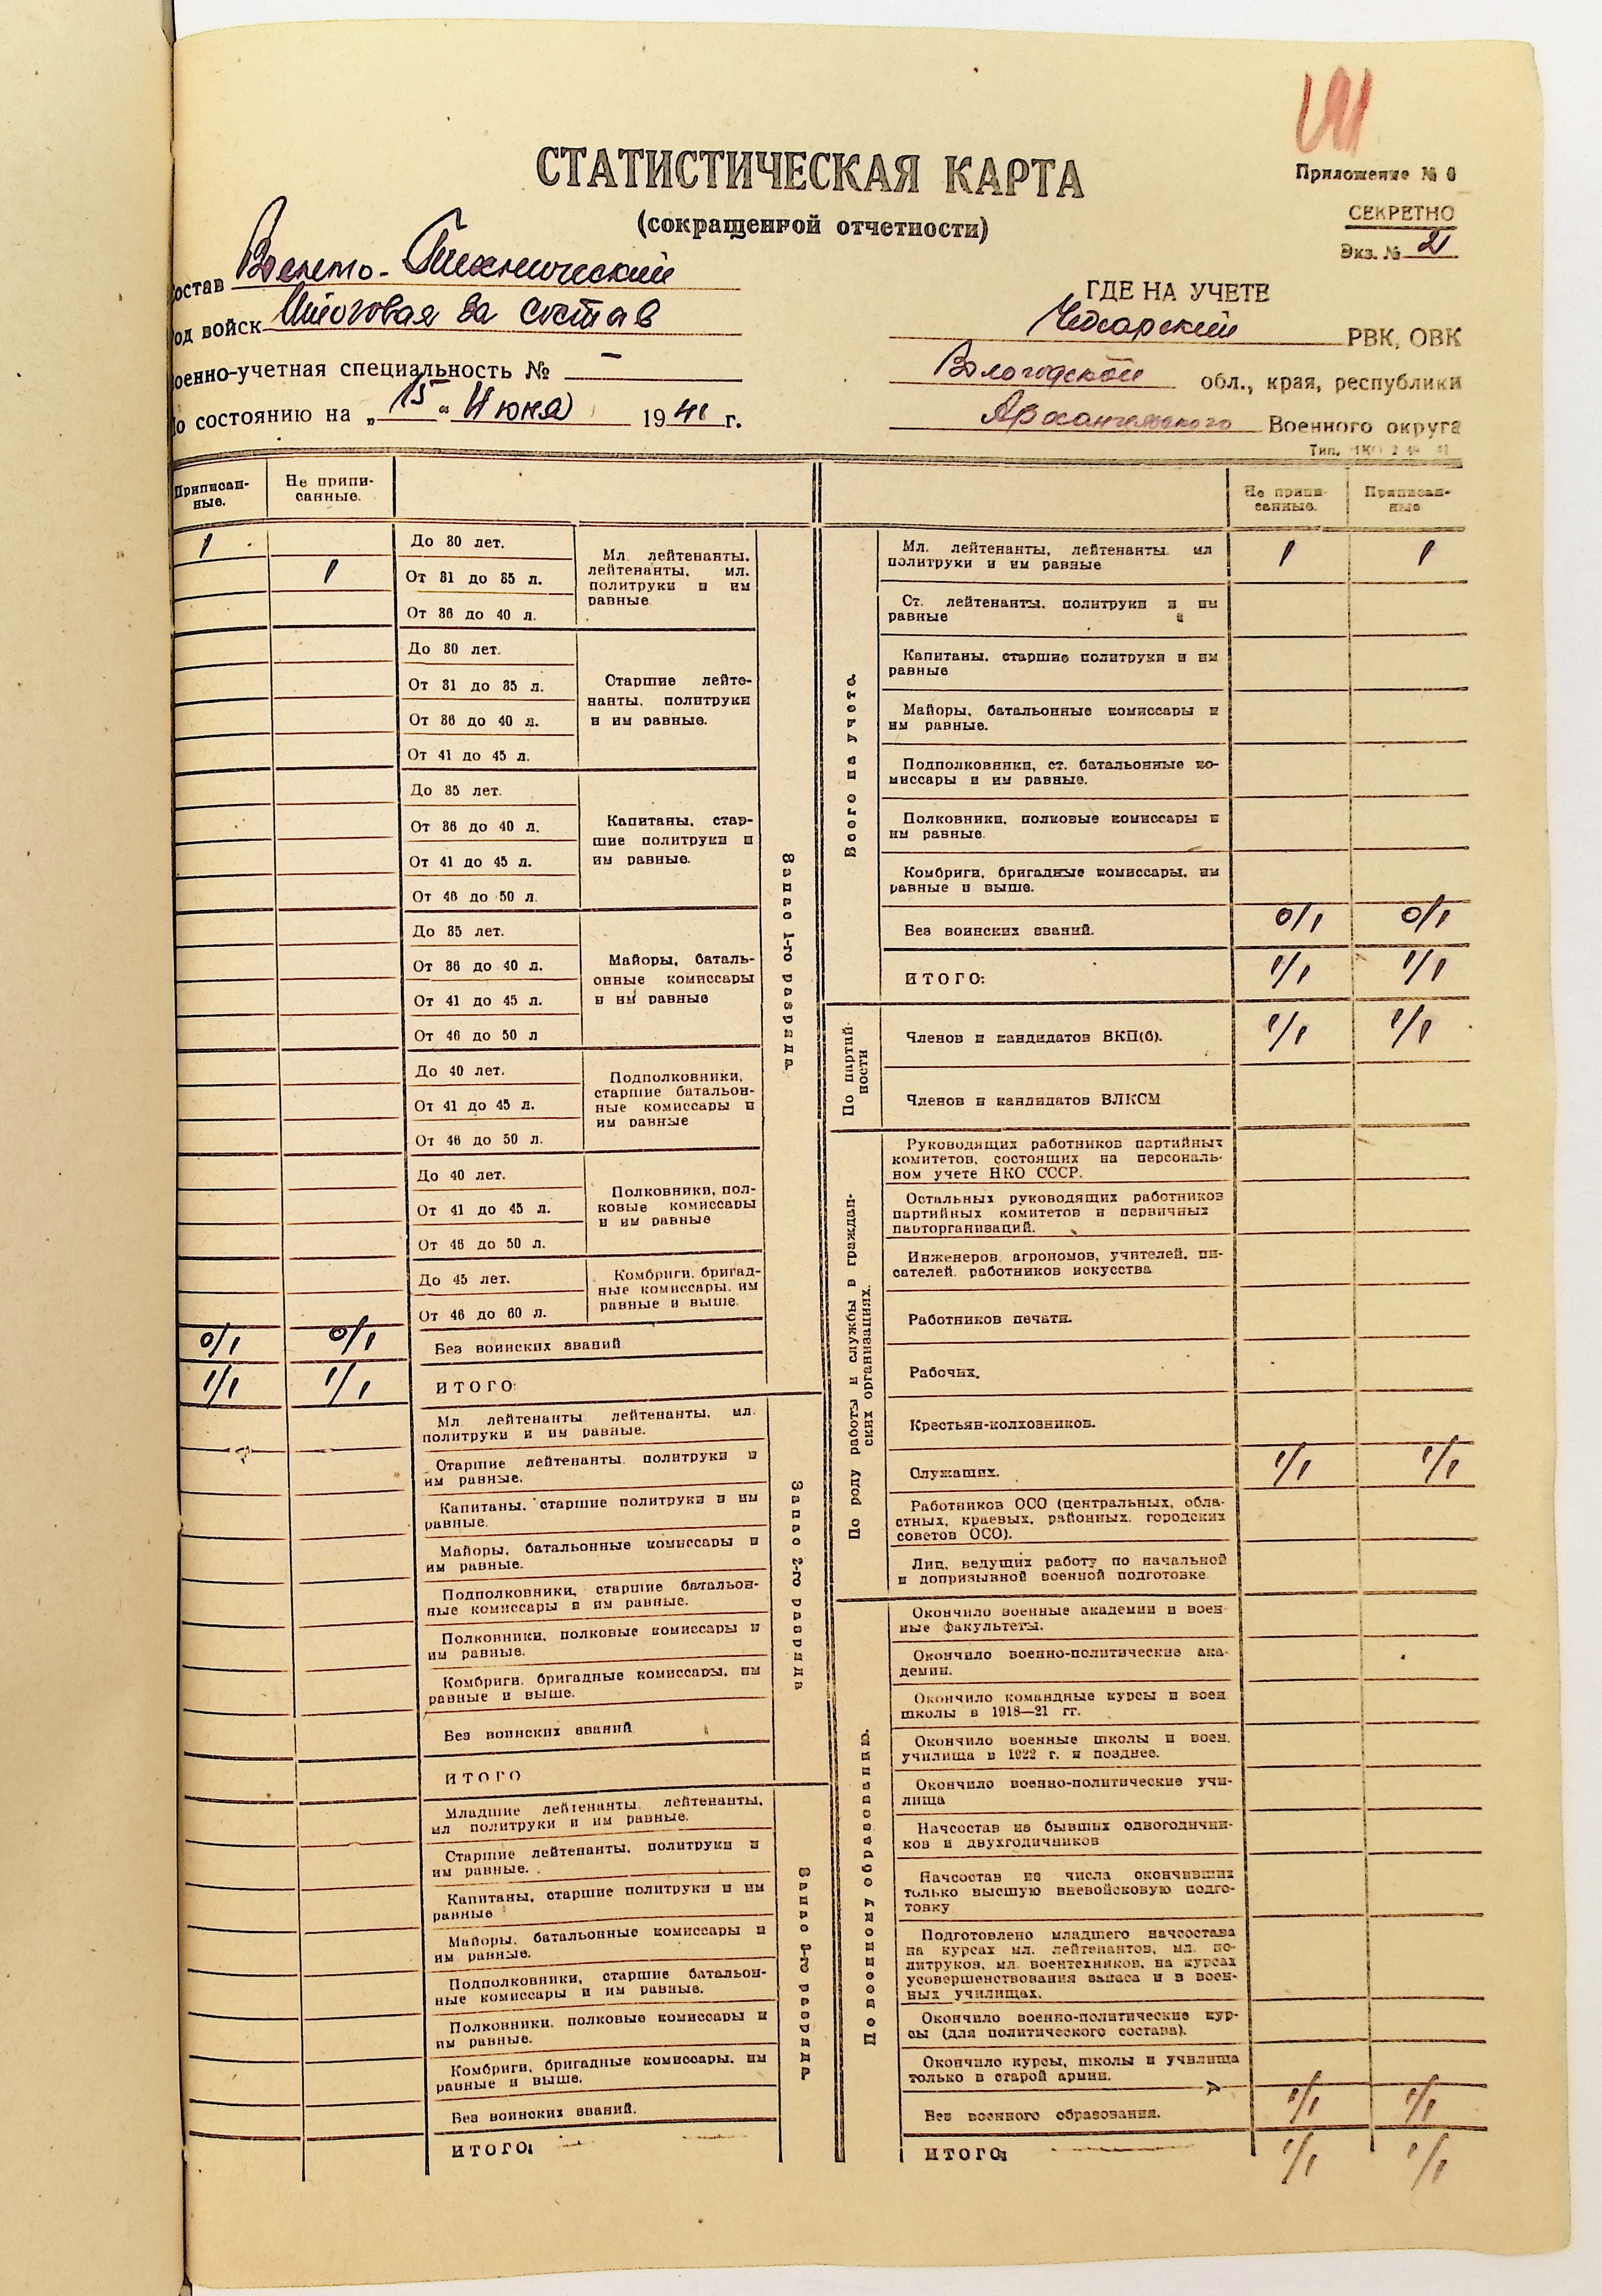 СТАТИСТИЧЕСКАЯ КАРТА
(сокращенной отчетности)
Приложение № 6
СЕКРЕТНО
Экз. № 2
остав Военно-Технический
од войск Итоговая за состав
оенно-учетная специальность № —
о состоянию на „15“ Июня 1941 г.
ГДЕ НА УЧЕТЕ
РВК, ОВК
Вологодской обл., края, республики
Архангельского Военного округа
Тип.
Приписан-
ные.
Не припи-
санные.
1
1
До 30 лет.
От 31 до 35 л.
От 36 до 40 л.
Мл. лейтенанты,
лейтенанты, мл.
политруки и им
равные
До 30 лет.
От 31 до 35 л.
От 36 до 40 л.
От 41 до 45 л.
Старшие лейте-
нанты, политруки
и им равные.
До 35 лет.
От 36 до 40 л.
От 41 до 45 л.
От 46 до 50 л.
Капитаны, стар-
шие политруки и
им равные.
До 35 лет.
От 36 до 40 л.
От 41 до 45 л.
От 46 до 50 л
Майоры, баталь-
онные комиссары
и им равные
До 40 лет.
От 41 до 45 л.
От 46 до 50 л.
Подполковники,
старшие батальон-
ные комиссары и
им равные
До 40 лет.
От 41 до 45 л.
От 46 до 50 л.
Полковники, пол-
ковые комиссары
и им равные
До 45 лет.
От 46 до 60 л.
Комбриги, бригад-
ные комиссары, им
равные и выше.
0/1 0/1 Без воинских званий
1/1 1/1 ИТОГО:
Запас 1-го разряда.
Мл. лейтенанты, лейтенанты, мл.
политруки и им равные.
Старшие лейтенанты, политруки и
им равные.
Капитаны, старшие политруки и им
равные.
Майоры, батальонные комиссары и
им равные.
Подполковники, старшие батальон-
ные комиссары и им равные.
Полковники, полковые комиссары и
им равные.
Комбриги, бригадные комиссары, им
равные и выше.
Без воинских званий
ИТОГО
Запас 2-го разряда
Младшие лейтенанты, лейтенанты,
мл политруки и им равные.
Старшие лейтенанты, политруки и
им равные.
Капитаны, старшие политруки и им
равные
Майоры, батальонные комиссары и
им равные.
Подполковники, старшие батальон-
ные комиссары и им равные.
Полковники, полковые комиссары и
им равные.
Комбриги, бригадные комиссары, им
равные и выше.
Без воинских званий.
ИТОГО:
Запас 3-го разряда.
Не припи-
санные.
Приписан-
ные
Всего на учете.
Мл. лейтенанты, лейтенанты, мл
политруки и им равные 1 1
Ст. лейтенанты, политруки и им
равные
Капитаны, старшие политруки и им
равные
Майоры, батальонные комиссары и
им равные.
Подполковники, ст. батальонные ко-
миссары и им равные.
Полковники, полковые комиссары и
им равные.
Комбриги, бригадные комиссары, им
равные и выше.
Без воинских званий. 0/1 0/1
ИТОГО: 1/1 1/1
По партий-
ности
Членов и кандидатов ВКП(б). 1/1 1/1
Членов и кандидатов ВЛКСМ
По роду работы и службы в граждан-
ских организациях.
Руководящих работников партийных
комитетов, состоящих на персональ-
ном учете НКО СССР.
Остальных руководящих работников
партийных комитетов и первичных
парторганизаций.
Инженеров, агрономов, учителей, пи-
сателей, работников искусства
Работников печати.
Рабочих.
Крестьян-колхозников.
Служащих. 1/1 1/1
Работников ОСО (центральных, обла-
стных, краевых, районных, городских
советов ОСО).
Лиц, ведущих работу по начальной
и допризывной военной подготовке
По военному образованию.
Окончило военные академии и воен-
ные факультеты.
Окончило военно-политические ака-
демии.
Окончило командные курсы и воен
школы в 1918—21 гг.
Окончило военные школы и воен.
училища в 1922 г. и позднее.
Окончило военно-политические учи-
лища
Начсостав из бывших одногодични-
ков и двухгодичников
Начсостав из числа окончивших
только высшую вневойсковую подго-
товку
Подготовлено младшего начсостава
на курсах мл. лейтенантов, мл. по-
литруков, мл. воентехников, на курсах
усовершенствования запаса и в воен-
ных училищах.
Окончило военно-политические кур-
сы (для политического состава).
Окончило курсы, школы и училища
только в старой армии.
Без военного образования. 1/1 1/1
ИТОГО: 1/1 1/1